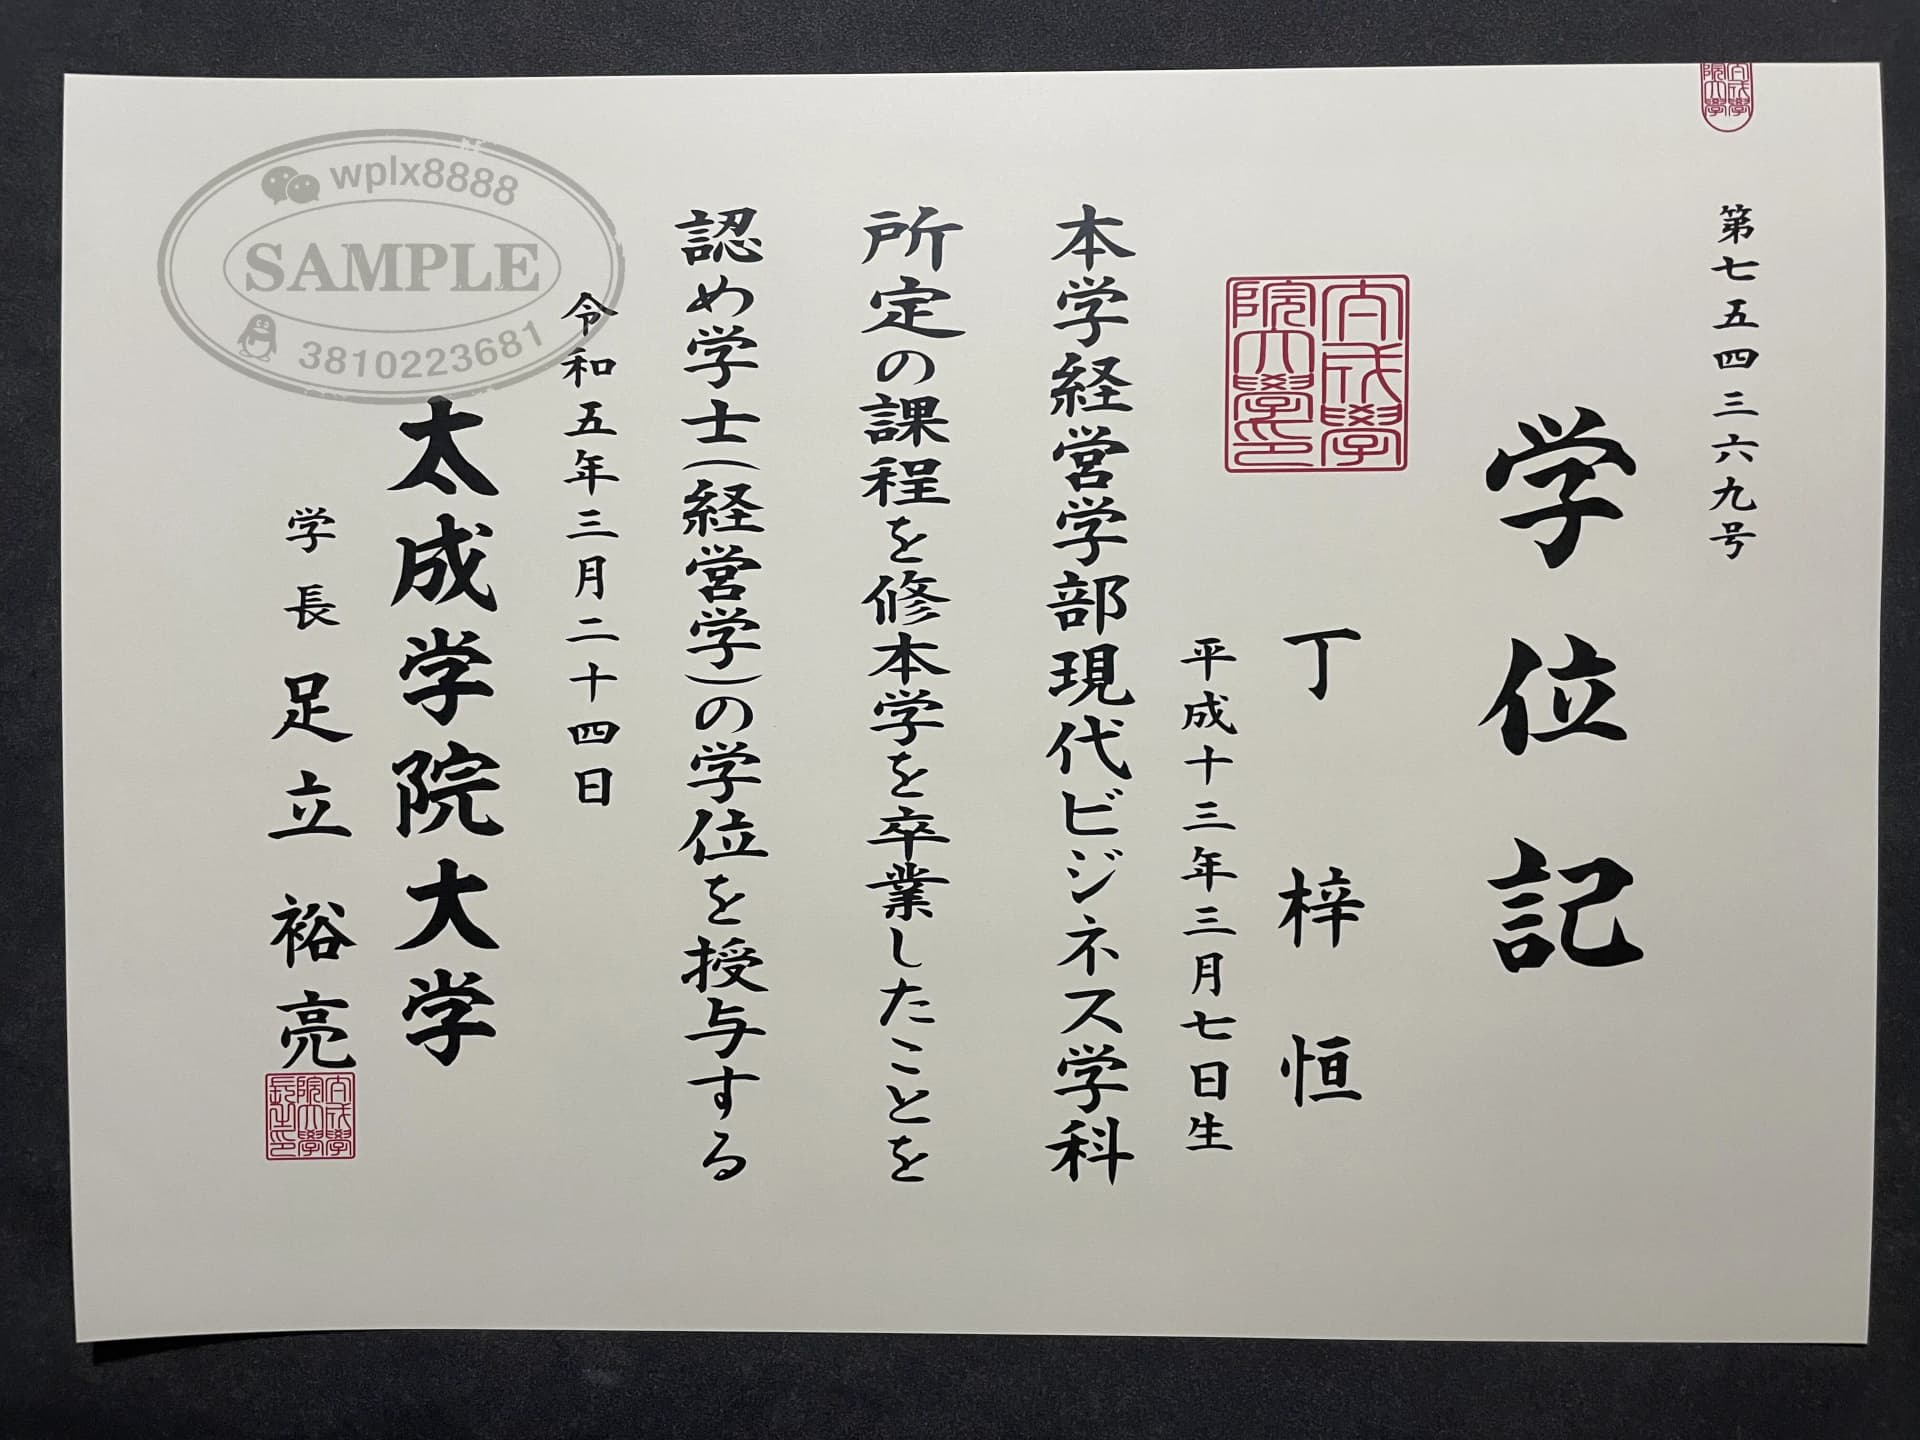 第七五四三六九号
学位記
太成学院大学印
丁梓恒
平成十三年三月七日生
本学経営学部現代ビジネス学科
所定の課程を修本学を卒業したことを
認め学士(経営学)の学位を授与する
令和五年三月二十四日
太成学院大学
学長 足立裕亮
wplx8888
SAMPLE
3810223681